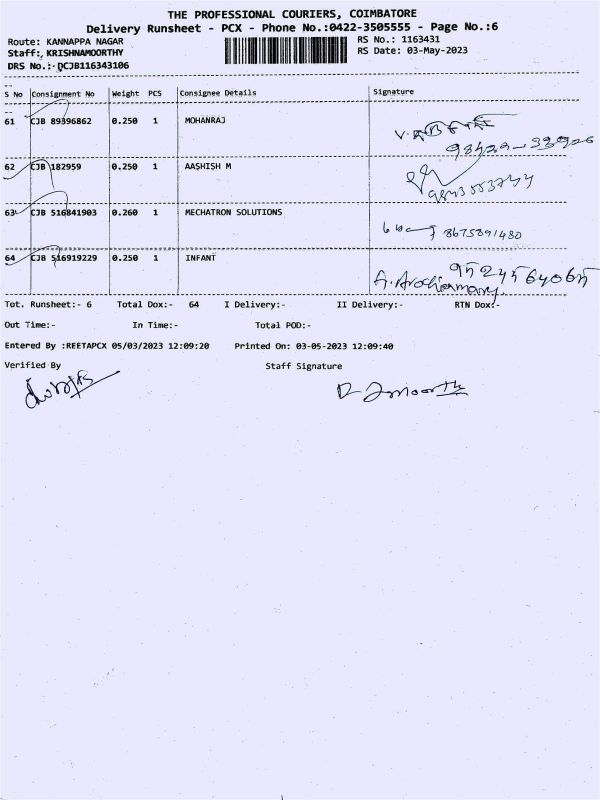 THE PROFESSIONAL COURIERS, COIMBATORE
Delivery Runsheet - PCX - Phone No.:0422-3505555 - Page No.:6
Route: KANNAPPA NAGAR
RS No.: 1163431
Staff:, KRISHNAMOORTHY
RS Date: 03-May-2023
DRS No.: DCJB116343106
S No Consignment No Weight PCS Consignee Details Signature
61 CJB 89396862 0.250 1 MOHANRAJ
62 CJB 182959 0.250 1 AASHISH M
63 CJB 516841903 0.260 1 MECHATRON SOLUTIONS
8675891480
64 CJB 516919229 0.250 1 INFANT
Tot. Runsheet:- 6 Total Dox:- 64 I Delivery:- II Delivery:- RTN Dox:-
Out Time:- In Time:- Total POD:-
Entered By :REETAPCX 05/03/2023 12:09:20 Printed On: 03-05-2023 12:09:40
Verified By Staff Signature